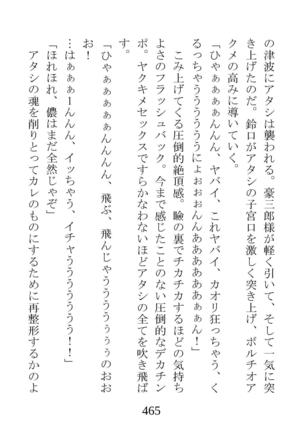 の津波にアタシは襲われる。豪三郎様が軽く引いて、そして一気に突
き上げたのだ。鈴口がアタシの子宮口を激しく突き上げ、ポルチオア
クメの高みに導いていく。
「ひゃぁぁぁぁんんん、ヤバイ、これヤバイ、カオリ狂っちゃう、く
るっちゃうううううにょぉぉおんんああああああぁぁん！」
　こみ上げてくる圧倒的絶頂感。瞼の裏でチカチカするほどの気持ち
よさのフラッシュバック。今まで感じたことのない圧倒的なデカチン
ポ。ヤクキメセックスですらかなわないほどアタシの全てを吹き飛ば
す。
「ひゃぁぁぁぁぁんんんん、飛ぶ、飛んじゃうううぅぅぅのおお
お！
…はぁぁぁーんんん、イッちゃう、イチャうううううう！！」
「ほれほれ、儂はまだ全然じゃぞ」
　アタシの魂を削りとってカレのものにするために再整形するかのよ
465